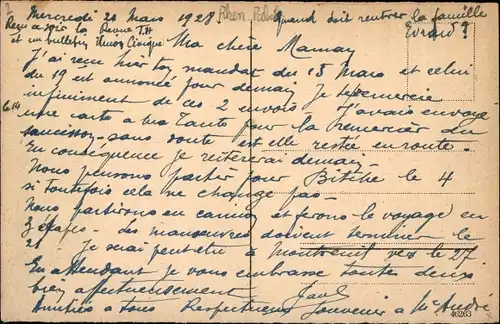 Mercredi 20 Mars 1928
Quand doit rentrer la famille
Evrard ?
Reçu à midi la Revue T.H
et un bulletin Cirque
Ma chère Maman
J'ai reçu hier ton mandat du 15 Mars et celui
du 19 est annoncé pour demain Je te remercie
infiniment de ces 2 envois J'avais envoyé
le 14 une carte à ma Tante pour la remercier du
saucisson - sans doute est-elle restée en route -
En conséquence je réitérerai demain -
Nous pensons partir pour Bitche le 4
si toutefois cela ne change pas -
Nous partirons en camion et ferons le voyage en
3 étapes - Les manœuvres doivent terminer le
21 Je serai peut-être à Montreuil vers le 27
En attendant je vous embrasse toutes deux
bien affectueusement Paul
Amitiés à tous Respectueux Souvenir à Mr André
46263